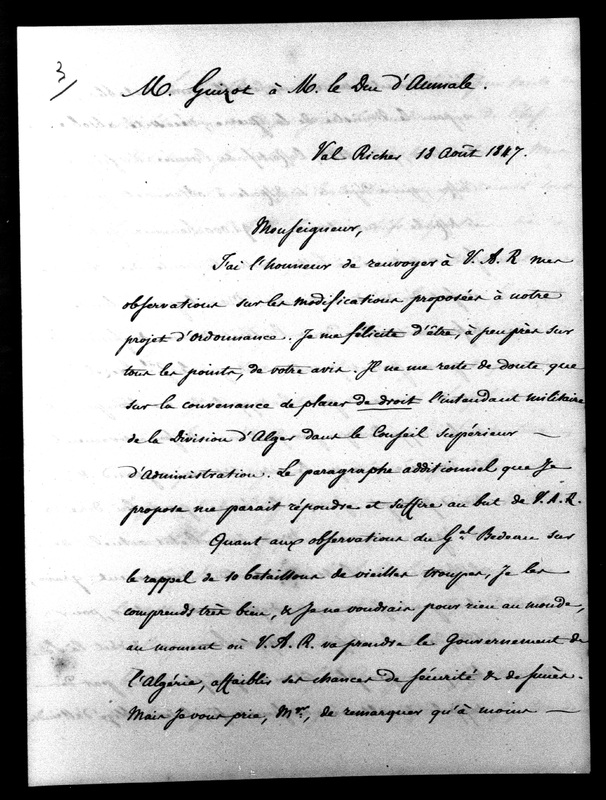 3/
M. Guizot à M. le Duc d'Aumale.
Val Richer 18 Août 1847.
Monseigneur,
J'ai l'honneur de renvoyer à V. A. R mes
observations sur les modifications proposées à notre
projet d'ordonnance. Je me félicite d'être, à peu près sur
tous les points, de votre avis. Il ne me reste de doute que
sur la convenance de placer de droit l'intendant militaire
de la Division d'Alger dans le Conseil supérieur —
d'Administration. Le paragraphe additionnel que Je
propose me parait répondre et suffire au but de V. A. R.
Quant aux observations du Gal Bedeau sur
le rappel de 10 bataillons de vieilles troupes, Je les
comprends très bien, & Je ne voudrais pour rien au monde,
au moment où V. A. R. va prendre le Gouvernement de
l'Algérie, affaiblir ses chances de sécurité & de succès.
Mais Je vous prie, Mgr, de remarquer qu'à moins —